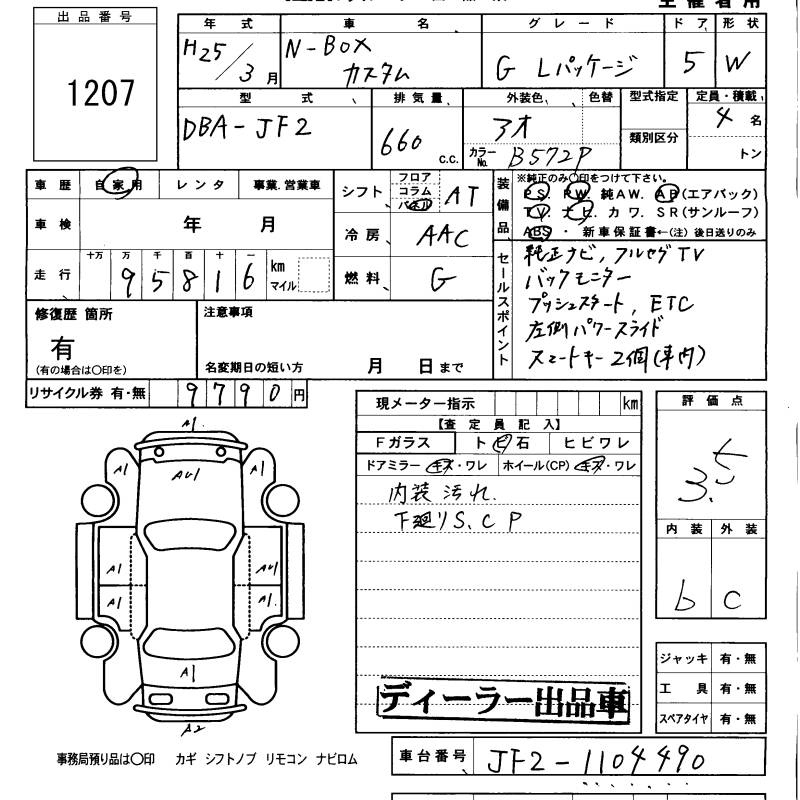 出品番号
1207
年式 車名 グレード ドア 形状
H25/3月 N-BOX カスタム G Lパッケージ 5 W
型式 排気量 外装色 色替 型式指定 定員・積載
DBA-JF2 660 C.C. アオ カラーNo. B572P 類別区分 4名 トン
車歴 自家用 レンタ 事業.営業車
車検 年 月
走行 十万 万 千 百 十 一 km マイル
9 5 8 1 6
シフト フロア コラム パネル AT
冷房 AAC
燃料 G
装備品
※純正のみ〇印をつけて下さい。
PS. PW. 純AW. AB(エアバック)
TV. ナビ. カワ. SR(サンルーフ)
ABS・新車保証書←(注)後日送りのみ
セールスポイント
純正ナビ, フルセグTV
バックモニター
プッシュスタート, ETC
左側パワースライド
スマートキー2個(車内)
修復歴 箇所
有
(有の場合は〇印を)
注意事項
名変期日の短い方 月 日まで
リサイクル券 有・無 9790円
現メーター指示 km
【査定員記入】
Fガラス トビ石 ヒビワレ
ドアミラー キズ・ワレ ホイール(CP) キズ・ワレ
内装汚れ.
下廻りS.C P
評価点
3.5
内装 外装
b C
A1
A1 AU1 A1
A1 AU1
A1 A1.
A1
A2
ジャッキ 有・無
工具 有・無
スペアタイヤ 有・無
ディーラー出品車
事務局預り品は〇印 カギ シフトノブ リモコン ナビロム
車台番号 JF2-1104490